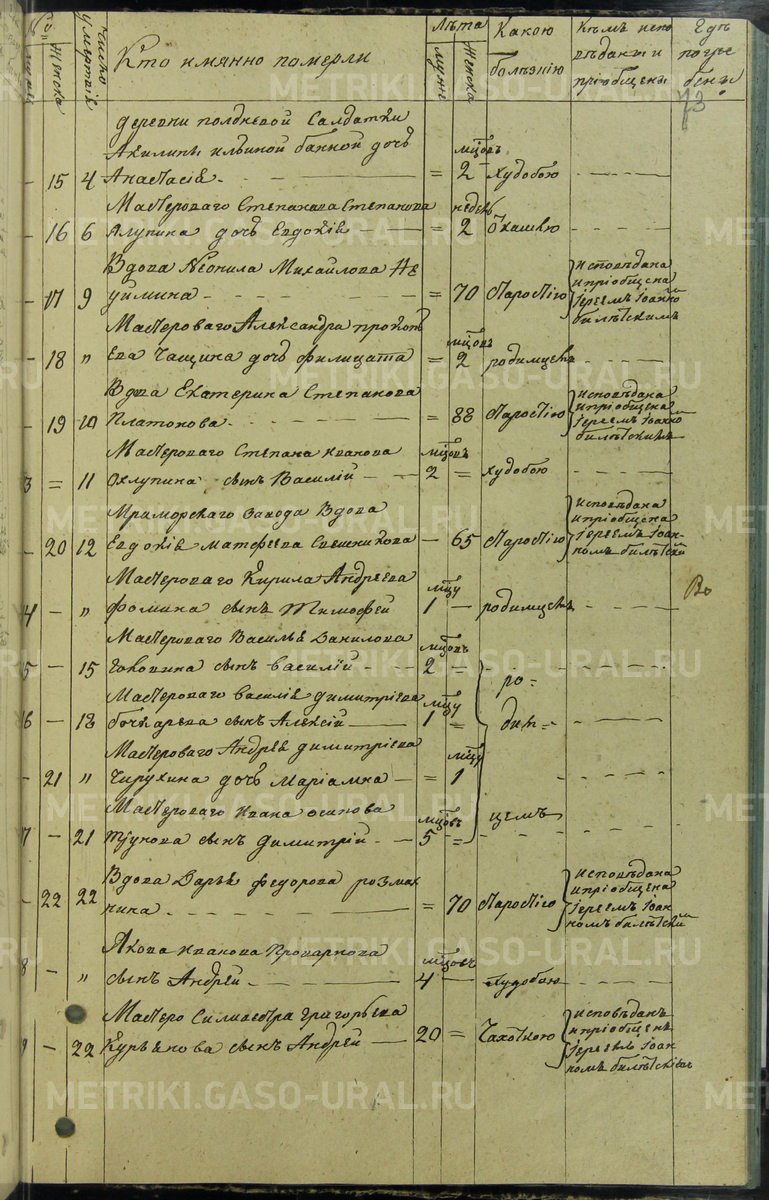 №
Женска
число умертвія
Кто имянно померли
Лѣта
муж
Женска
Какою болѣзнію
Кѣмъ исповѣданы и пріобщены
Гдѣ погребены
73
деревни полдневой Салдатки
Акилины Ильиной банной дочь
15 4 Анастасія = мцовъ 2 худобою
Мастероваго Степанова
16 6 Алупина дочь Евдокія = недель 2
Вдова Неонила Михайлова Не
17 9 уймина = 70 старостію исповѣдана и пріобщена Іереемъ Іоанномъ билѣтскимъ
Мастероваго Александра прокопь
18 " ева Чащина дочь филицата = мцовъ 2 родимцемъ
Вдова Екатерина Степанова
19 10 Платонова = 88 старостію исповѣдана и пріобщена Іереемъ Іоанномъ билѣтскимъ
Мастероваго Степана Иванова
3 = 11 Охлупина сынъ Василій мцовъ 2 = худобою
Мраморскаго Завода Вдова
20 12 Евдокія Матфеева Свешникова — 65 старостію исповѣдана и пріобщена Іереемъ Іоанномъ билѣтски
Мастероваго Кирила Андреева
4 — " фомина сынъ Тимофей мцу 1 — родимцемъ
Во
Мастероваго Василья Данилова
5 — 15 сынъ Василій мцовъ 2 =
Мастероваго Василія Димитріева
6 — 18 бочкарева сынъ Алексій мцу 1 =
Мастероваго Андрея Димитріева
21 " Чирухина дочь Маріамна = мцу 1
Мастероваго Ивана осипова
7 — 21 сынъ Димитрій мцовъ 5 =
ро=
дим=
цемъ
Вдова Дарья федорова розман
22 22 нина = 70 старостію исповѣдана и пріобщена Іереемъ Іоанномъ билѣтски
Якова Иванова
8 — " сынъ Андрей мцовъ 4 — худобою
Мастеро Силивестра григорьева
9 — 22 Курьянова сынъ Андрей 20 = Чахоткою исповѣданъ и пріобщенъ Іереемъ Іоанномъ билѣтскимъ
METRIKI.GASO-URAL.RU